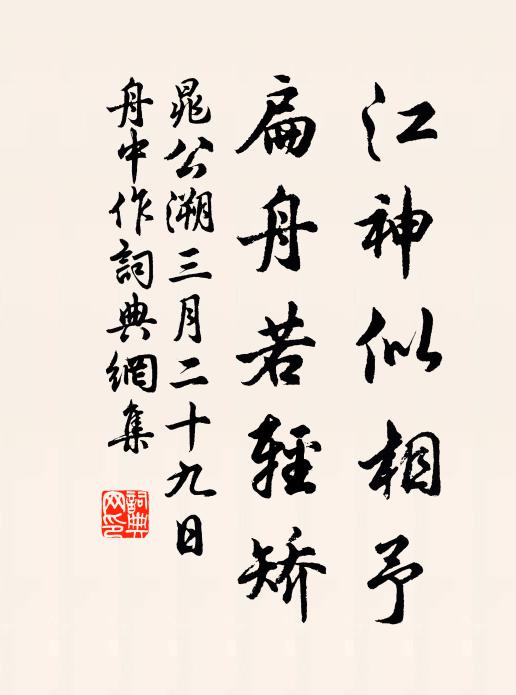 江神似相予
扁舟若輕矯
晁公溯三月二十九日
舟中作詞典網集
詞典
网印